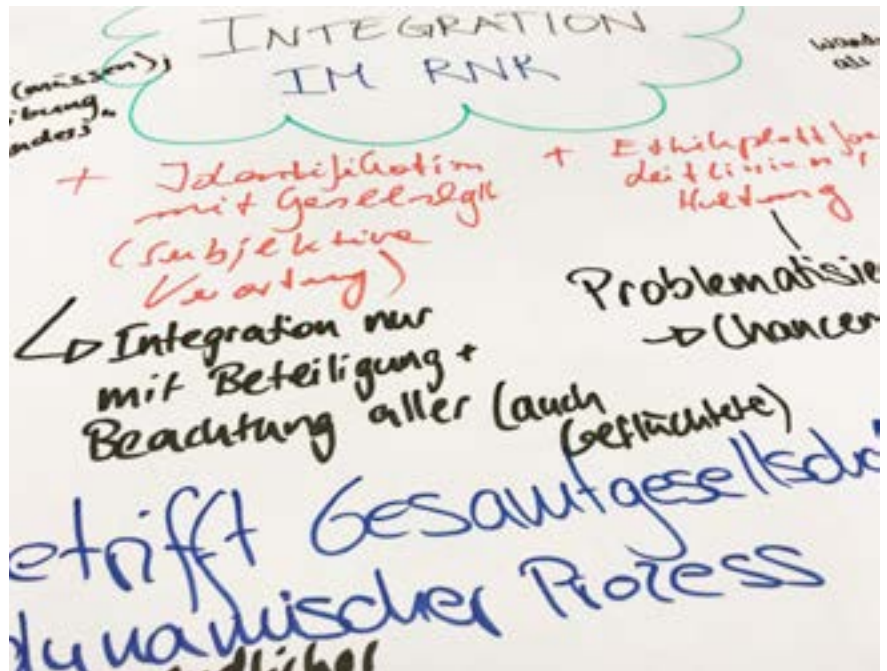 INTEGRATION
IM RNK
(müssen),
+ Identifikation
mit Gesellsch
(subjektive
Verortung)
+ Ethikplattfor
Leitlinien,
Haltung
Problematisie
→ Chancen
→ Integration nur
mit Beteiligung +
Beachtung aller (auch
Geflüchtete)
etrifft Gesamtgesellscha
dynamischer Prozess